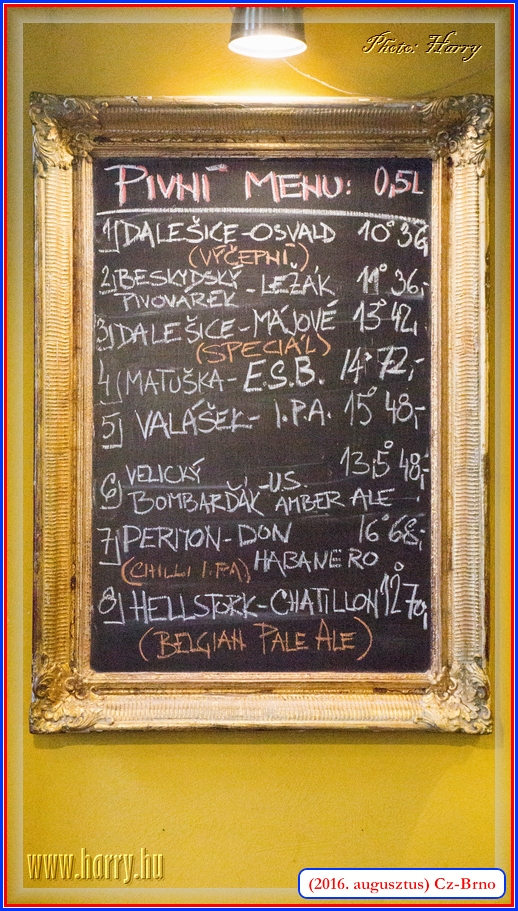 Photo: Harry
PIVNÍ MENU: 0,5L
1) DALEŠICE-OSVALD 10° 36,-
(VÝČEPNÍ)
2) BESKYDSKÝ PIVOVÁREK - LEŽÁK 11° 36,-
3) DALEŠICE-MÁJOVÉ 13° 42,-
(SPECIÁL)
4) MATUŠKA- E.S.B. 14° 72,-
5) VALÁŠEK- I.P.A. 15° 48,-
13,5° 48,-
6) VELICKÝ BOMBARĎÁK -U.S. AMBER ALE
7) PERMON-DON 16° 68,-
(CHILLI I.P.A) HABANERO
8) HELLSTORK-CHATILLON 12° 70,-
(BELGIAN PALE ALE)
www.harry.hu
(2016. augusztus) Cz-Brno